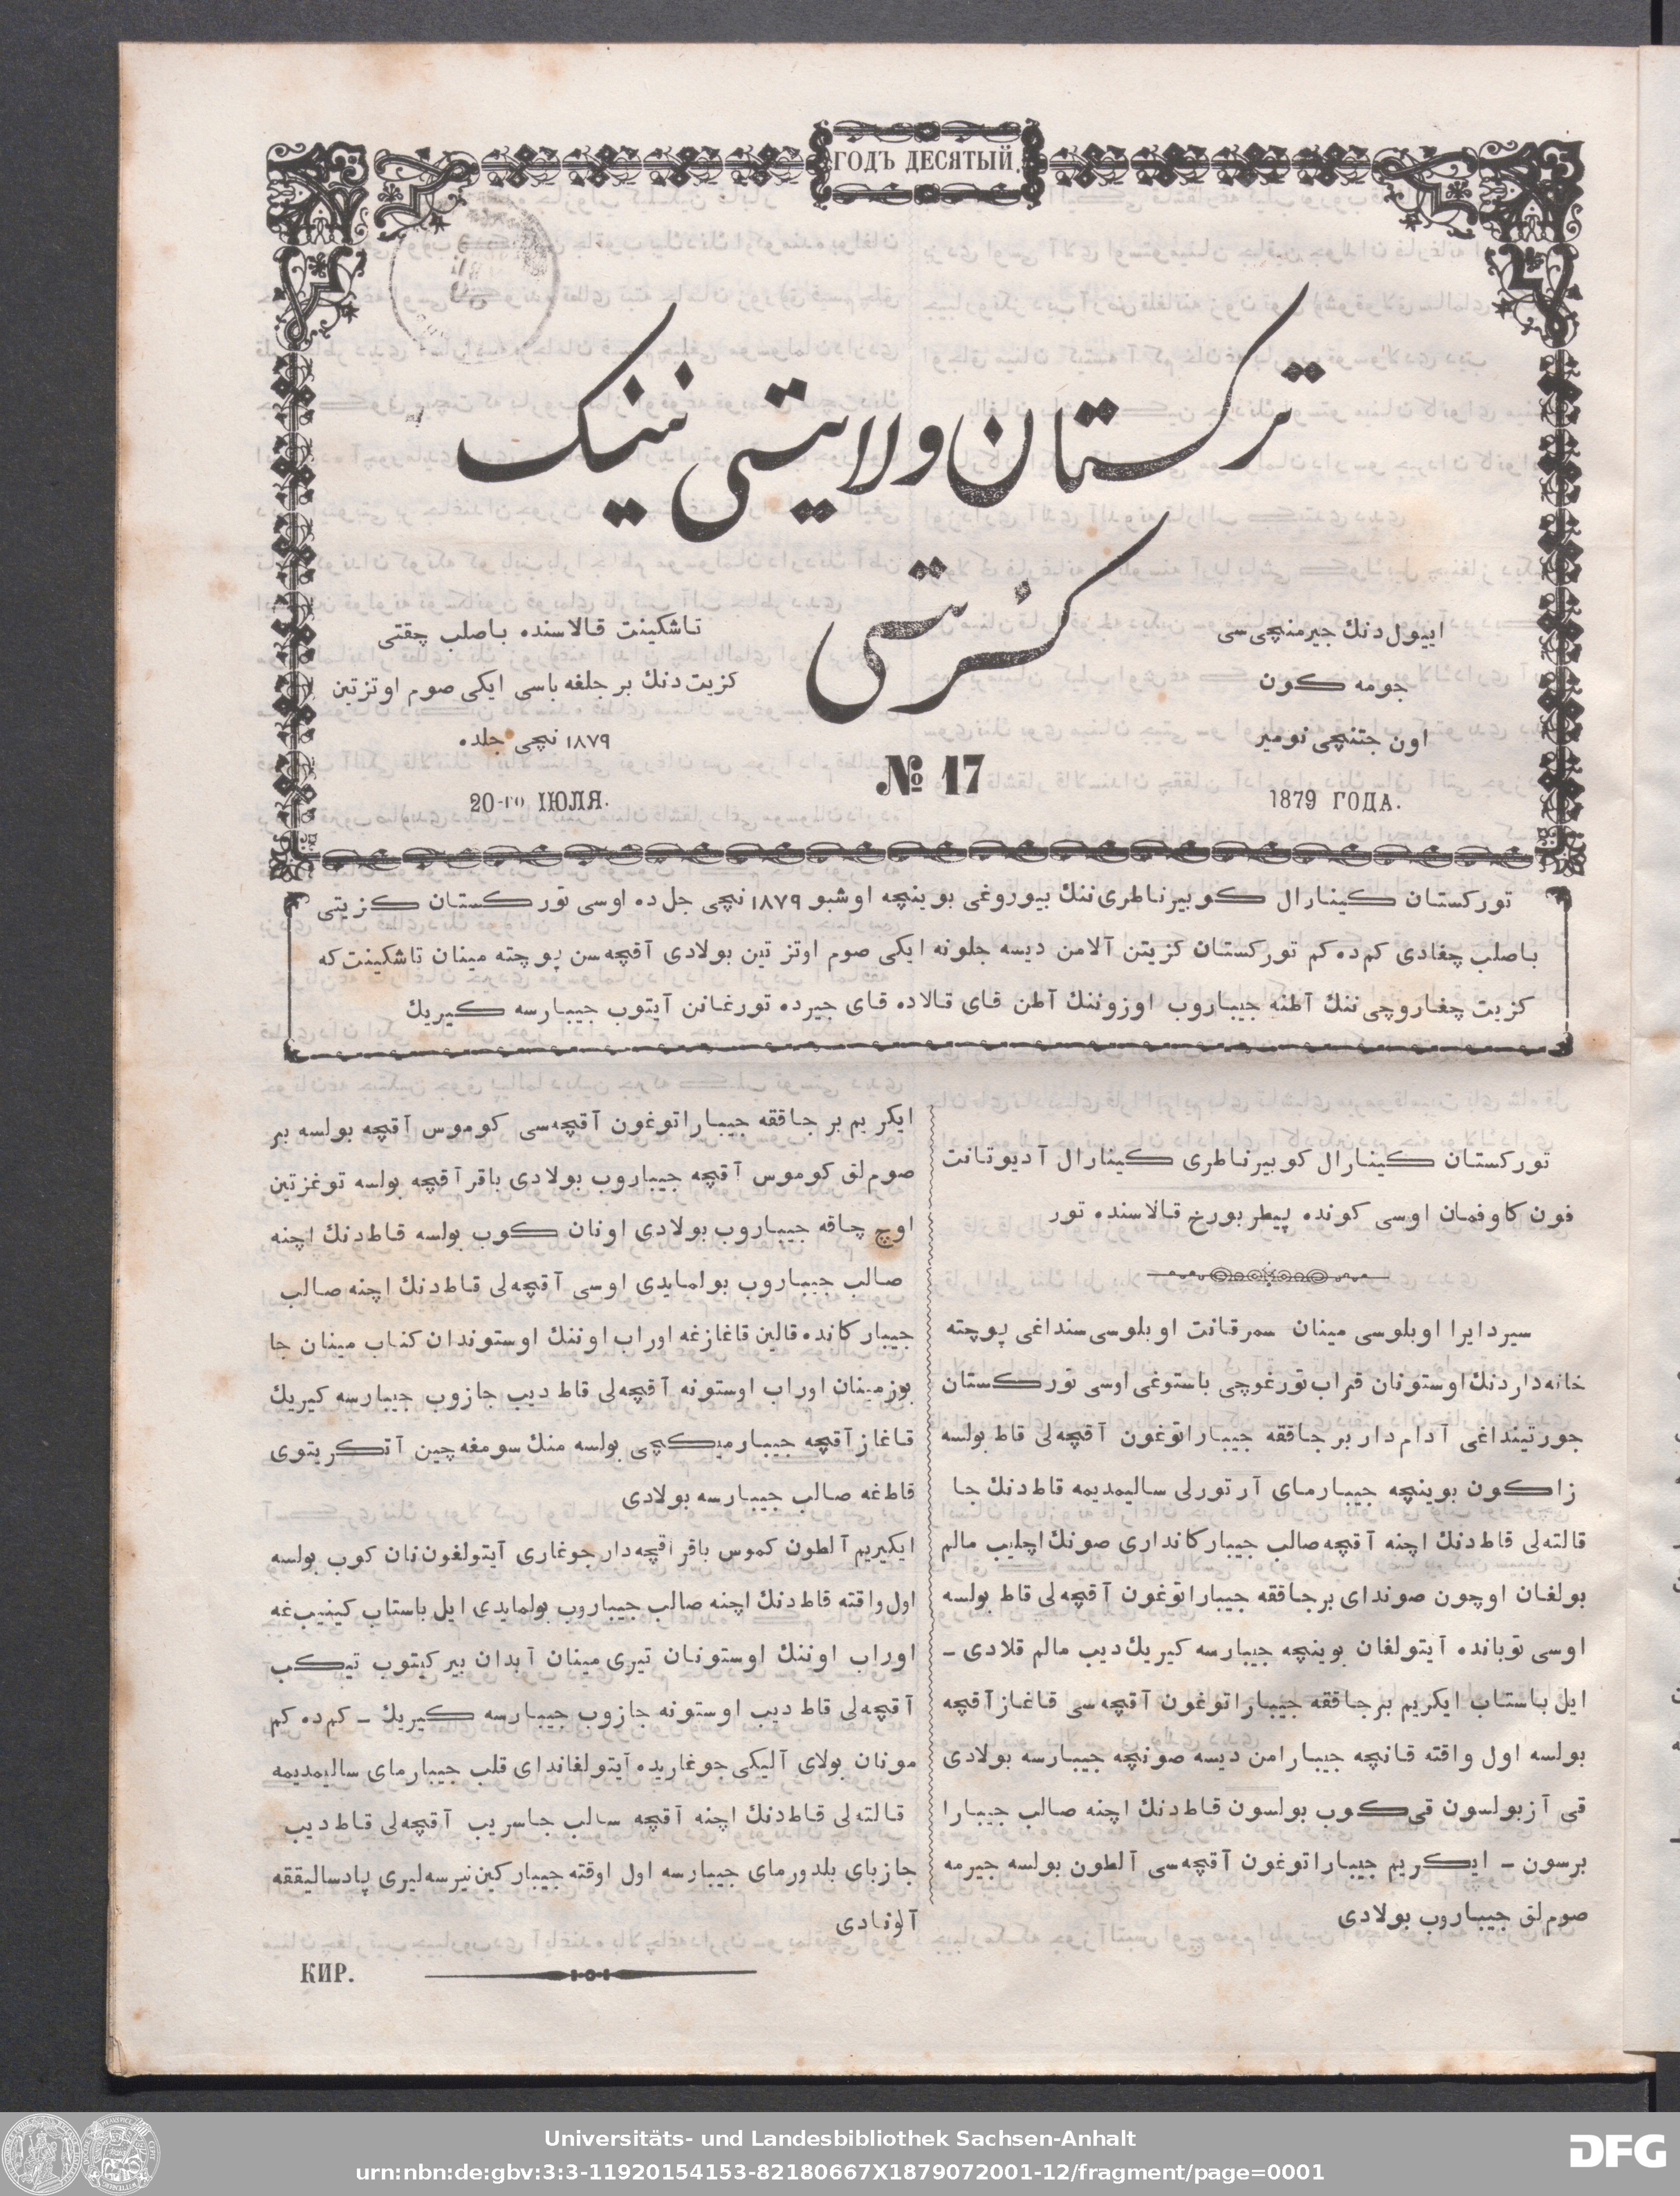 ГОДЪ ДЕСЯТЫЙ.
ترکستان ولایتی نینک
کزیتی
اییول‌دنك جیرمنچی‌سی
جومه کون
اون جتنچی نومیر
1879 ГОДА.
№ 17
تاشکینت قالاسنده باصلب چقتی
کزیت‌دنك بر جلغه باسی ایکی صوم اوتزتین
۱۸۷۹ نچی جلده
20-го ІЮЛЯ.
تورکستان کینارال کوبیرناطری‌ننك بیوروغی بوینچه اوشبو ۱۸۷۹ نچی جل‌ده اوسی تورکستان کزیتی
باصلب چغادی کم‌ده‌کم تورکستان کزیتن آلامن دیسه جلونه ایکی صوم اوتز تین بولادی آقچه‌سن پوچته مینان تاشکینت‌که
کزیت چغاروچی‌ننك آطنه جیباروب اوزوننك آطن قای قالاده قای جیرده تورغانن آیتوب جیبارسه کیریك
تورکستان کینارال کوبیرناطری کینارال آدیوتانت
فون کاوفمان اوسی کونده پیطربورخ قالاسنده تور
سیردایرا اوبلوسی مینان سمرقانت اوبلوسی‌سنداغی پوچته
خانه‌داردنك اوستونان قراب تورغوچی باستوغی اوسی تورکستان
جورتینداغی آدام‌دار بر جاققه جیباراتوغون آقچه‌لی قاط بولسه
زاکون بوینچه جیبارمای آر تورلی سالیمدیمه قاط‌دنك جا
قالته‌لی قاط‌دنك اچنه آقچه صالب جیبارکانداری صونك اچلیب مالم
بولغان اوچون صوندای برجاققه جیباراتوغون آقچه‌لی قاط بولسه
اوسی توبانده آیتولغان بوینچه جیبارسه کیریك دیب مالم قلادی ـ
ایل باستاب ایکریم برجاققه جیباراتوغون آقچه‌سی قاغاز آقچه
بولسه اول واقته قانچه جیبارامن دیسه صونچه جیبارسه بولادی
قی آز بولسون قی کوب بولسون قاط‌دنك اچنه صالب جیبارا
برسون ـ ایکریم جیباراتوغون آقچه‌سی آلطون بولسه جیرمه
صوم‌لق جیباروب بولادی
ایکریم بر جاققه جیباراتوغون آقچه‌سی کوموس آقچه بولسه بر
صوم‌لق کوموس آقچه جیباروب بولادی باقر آقچه بولسه توغزتین
اوچ چاقه جیباروب بولادی اونان کوب بولسه قاط‌دنك اچنه
صالب جیباروب بولمایدی اوسی آقچه‌لی قاط‌دنك اچنه صالب
جیبارکانده قالین قاغازغه اوراب اوننك اوستوندان کناب مینان جا
بوزمینان اوراب اوستونه آقچه‌لی قاط دیب جازوب جیبارسه کیریك
قاغاز آقچه جیبارمیکچی بولسه منك سومغه‌چین آتکریتوی
قاط‌غه صالب جیبارسه بولادی
ایکیریم آلطون کموس باقر اقچه‌دار جوغاری آیتولغون‌نان کوب بولسه
اول واقته قاط‌دنك اچنه صالب جیباروب بولمایدی ایل باستاب کینیب‌غه
اوراب اوننك اوستونان تیری مینان آبدان بیرکیتوب تیکب
آقچه‌لی قاط دیب اوستونه جازوب جیبارسه کیریك ـ کم‌ده کم
مونان بولای آلیکی جوغاریده آیتولغاندای قلب جیبارمای سالیمدیمه
قالته‌لی قاط‌دنك اچنه آقچه سالب جاسریب آقچه‌لی قاط دیب
جازبای بلدورمای جیبارسه اول اوقته جیبارکین نیرسه‌لیری پادسالیققه
آلونادی
КИР.
Universitäts- und Landesbibliothek Sachsen-Anhalt
urn:nbn:de:gbv:3:3-11920154153-82180667X1879072001-12/fragment/page=0001
DFG